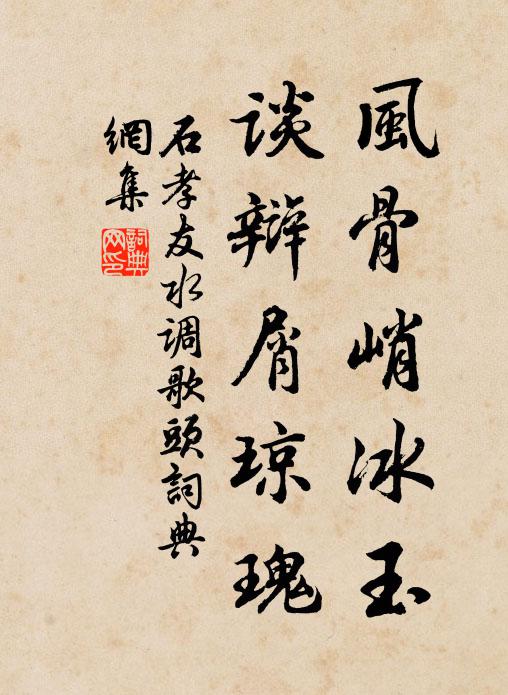 風骨峭冰玉
談辯屑琼瑰
石孝友水調歌頭詞典
網集
詞典
网印